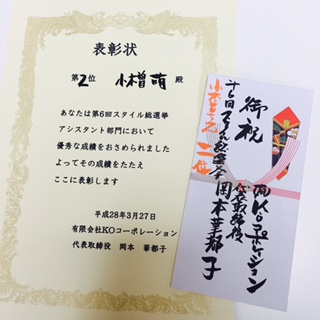 表彰状
第2位 小檜萌 殿
あなたは第6回スタイル総選挙
アシスタント部門において
優秀な成績をおさめられました
よってその成績をたたえ
ここに表彰します
平成28年3月27日
有限会社KOコーポレーション
代表取締役 岡本 華都子
御祝
㈲KOコーポレーション
代表取締役
岡本華都子
二位